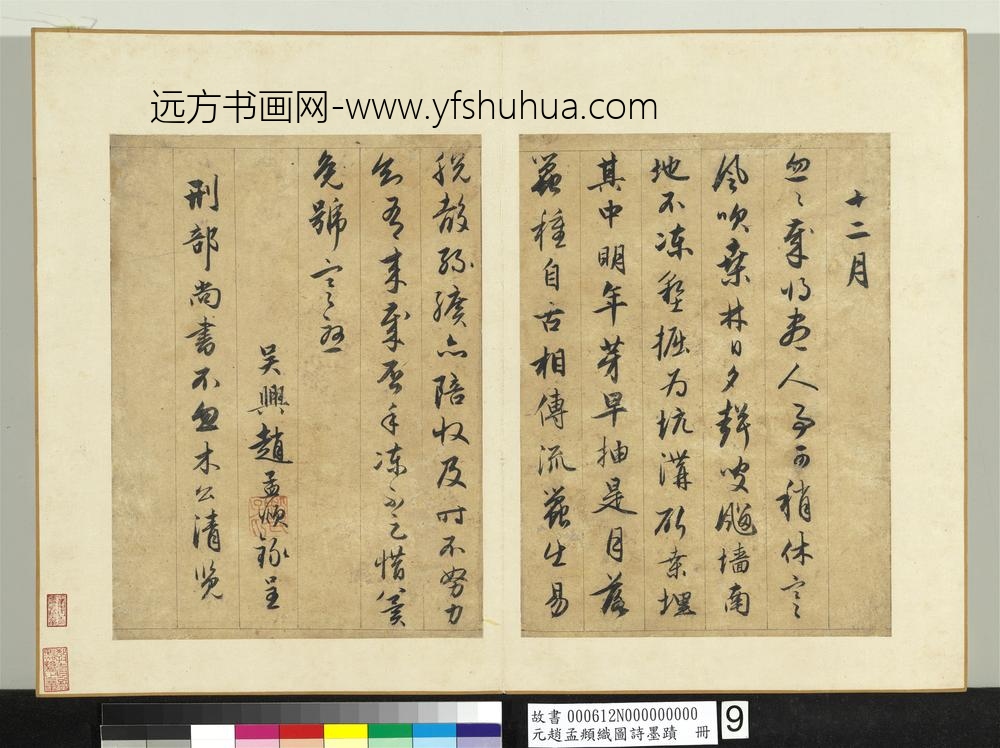 远方书画网-www.yfshuhua.com
十二月
忽〻歲將盡人事可稍休寒
風吹桒林日夕聲颼颼墙南
地不凍墾掘为坑溝斫桒埋
其中明年芽早抽是月浴
蠶種自古相傳流蠶出易
脱殼絲纊亦陪收及时不努力
知有来歲否手凍不足惜冀
免號寒憂
吴興趙孟頫録呈
刑部尚書不忽木公清覽
故書 000612N000000000
元趙孟頫織圖詩墨蹟 冊
9